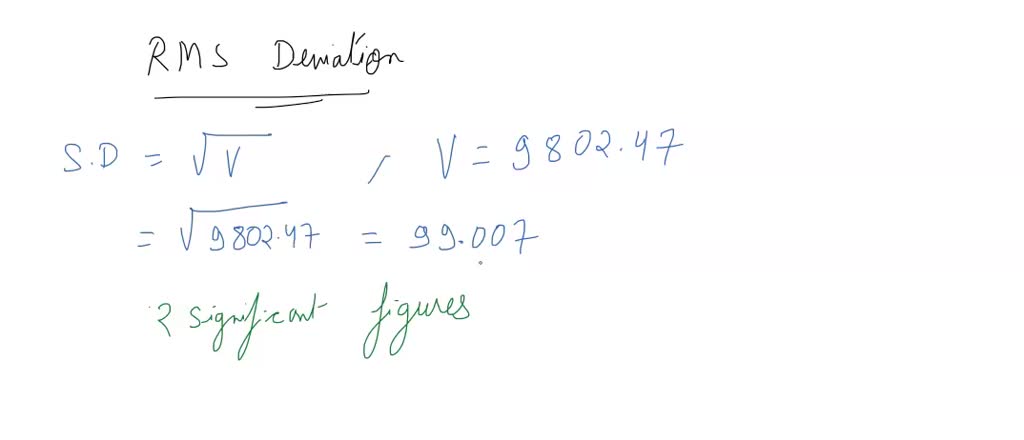 RMS Deviation
S.D = √V , V = 9802.47
= √9802.47 = 99.007
2 significant figures